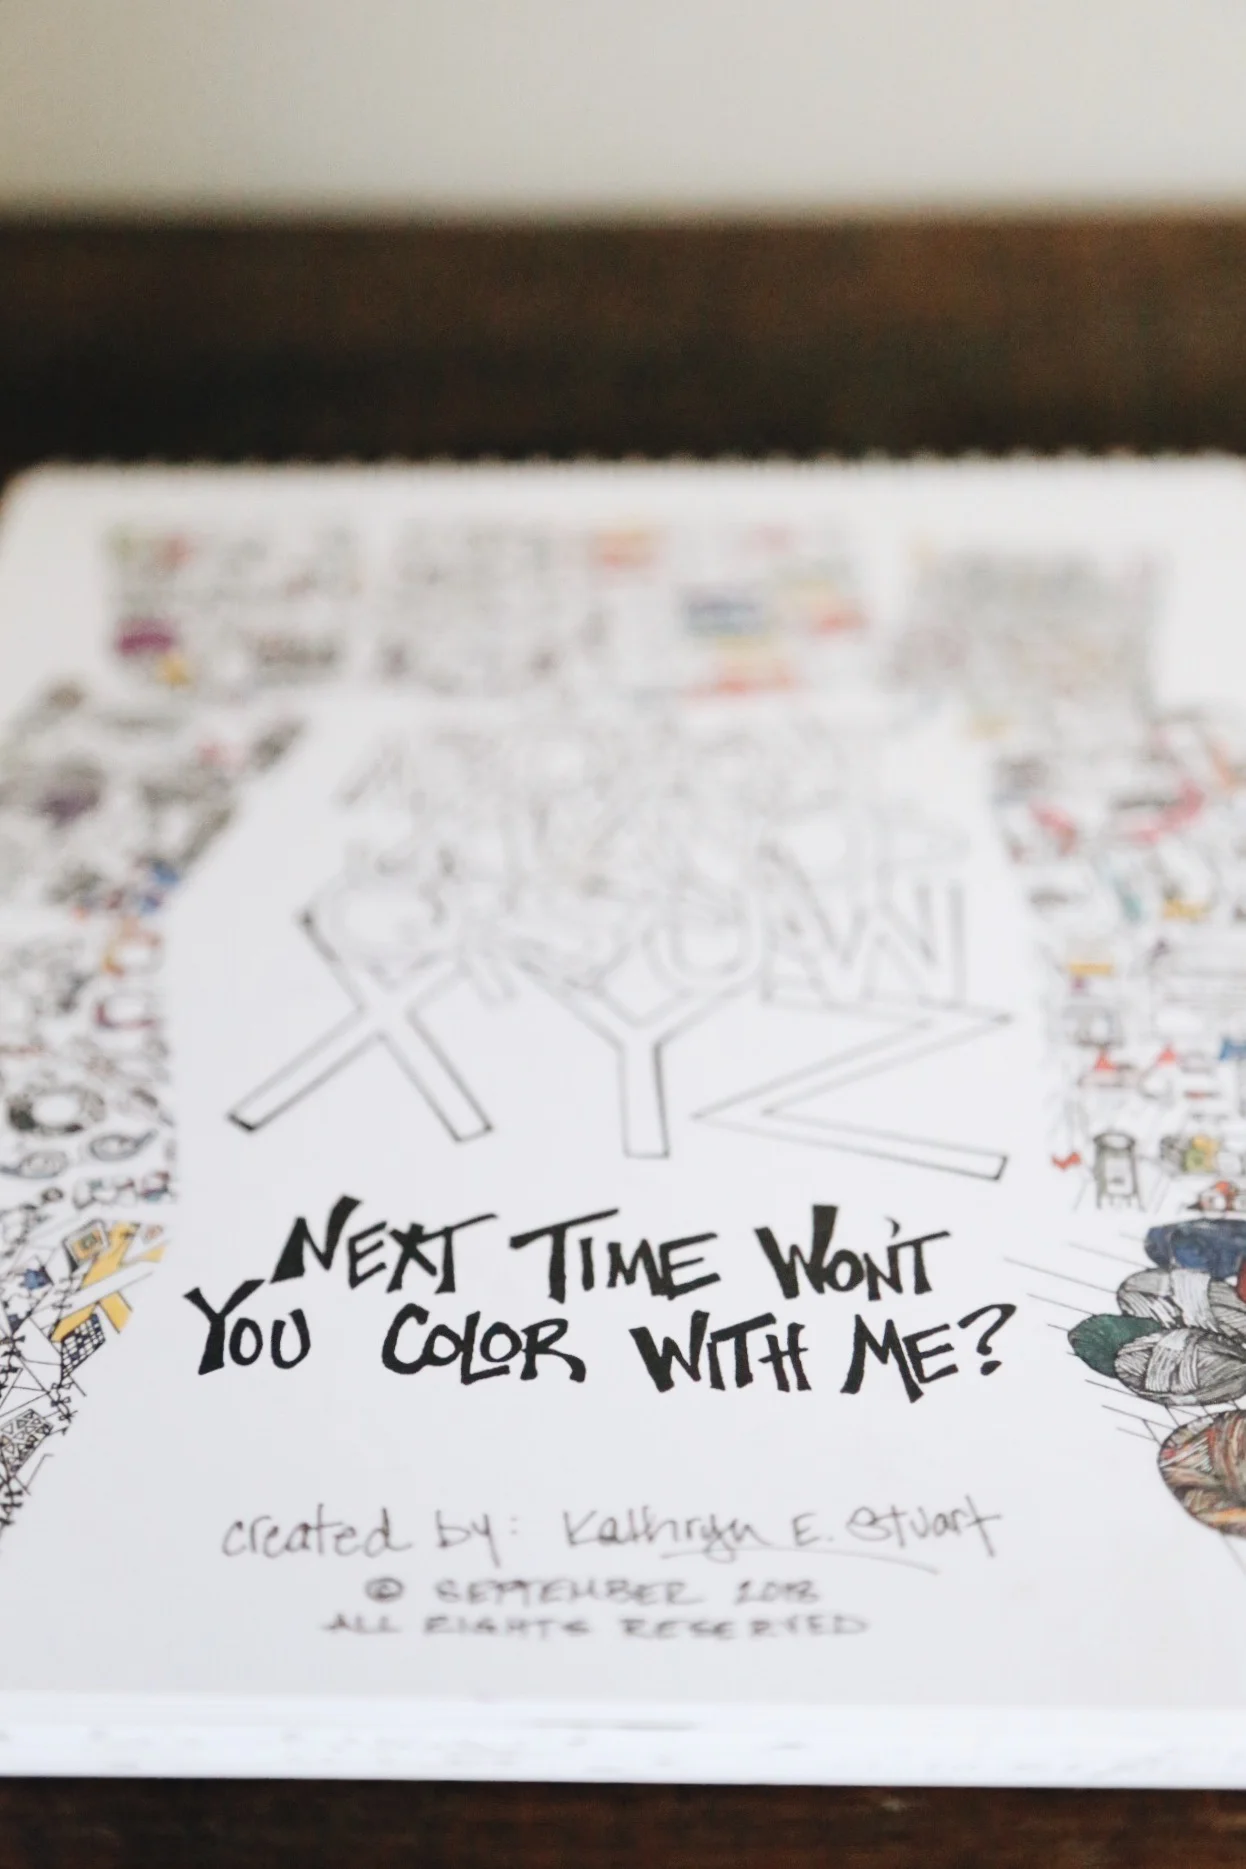 X Y Z
NEXT TIME WON'T
YOU COLOR WITH ME?
created by: Kathryn E. Stuart
© SEPTEMBER 2018
ALL RIGHTS RESERVED